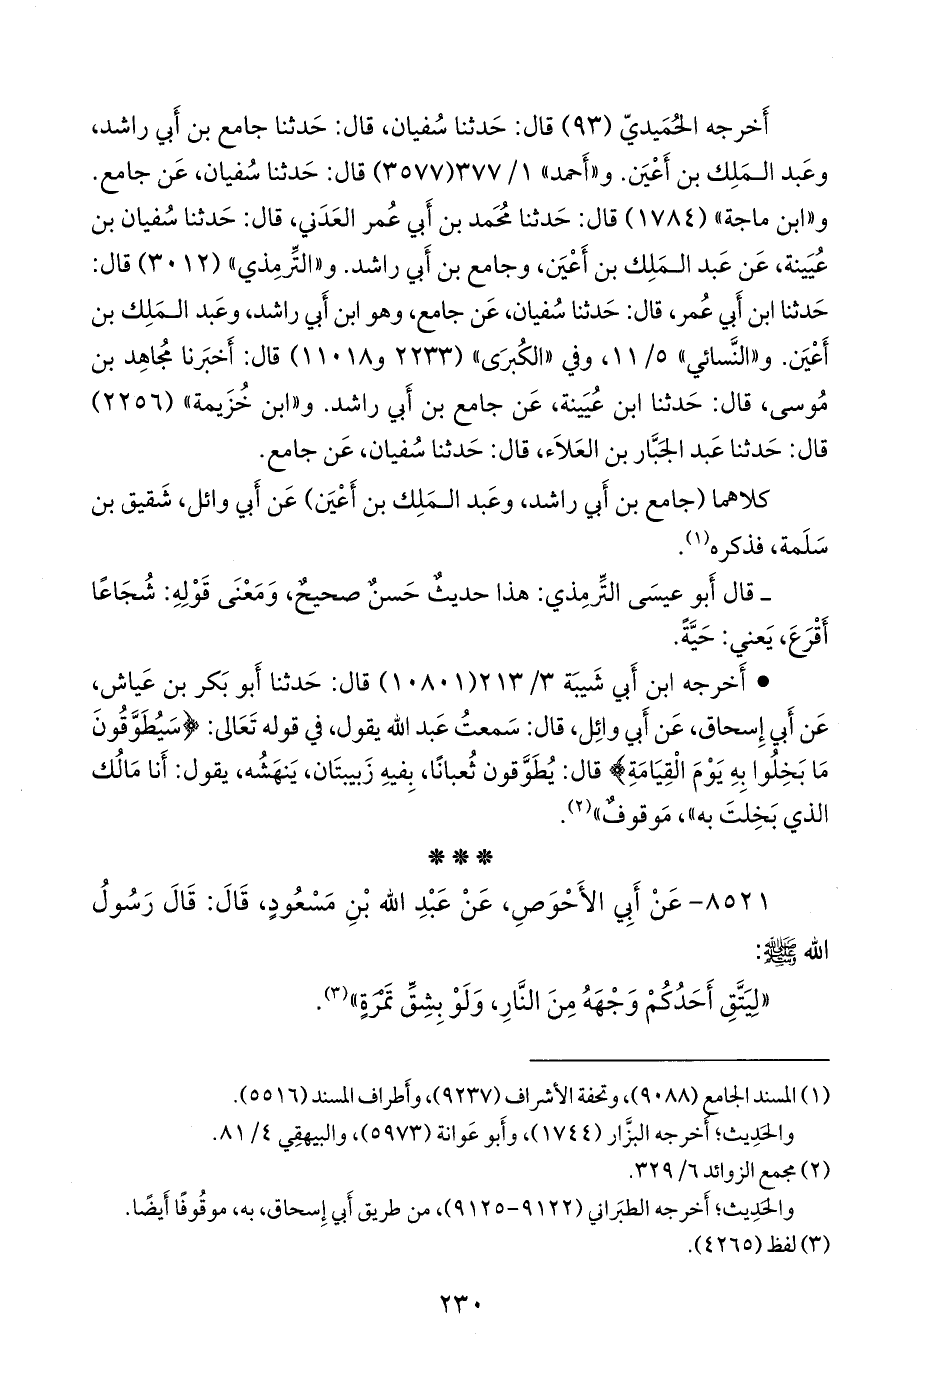 أَخرجه الحُمَيديّ (٩٣) قال: حَدثنا سُفيان، قال: حَدثنا جامع بن أَبي راشد،
وعَبد الـمَلِك بن أَعْيَن. و«أَحمد» ١/ ٣٧٧(٣٥٧٧) قال: حَدثنا سُفيان، عَن جامع.
و«ابن ماجة» (١٧٨٤) قال: حَدثنا مُحمد بن أَبي عُمر العَدَني، قال: حَدثنا سُفيان بن
عُيَينة، عَن عَبد الـمَلِك بن أَعْيَن، وجامع بن أَبي راشد. و«التِّرمِذي» (٣٠١٢) قال:
حَدثنا ابن أَبي عُمر، قال: حَدثنا سُفيان، عَن جامع، وهو ابن أَبي راشد، وعَبد الـمَلِك بن
أَعْيَن. و«النَّسائي» ٥/ ١١، وفي «الكُبرَى» (٢٢٣٣ و١١٠١٨) قال: أَخبَرنا مُجاهد بن
مُوسى، قال: حَدثنا ابن عُيَينة، عَن جامع بن أَبي راشد. و«ابن خُزيمة» (٢٢٥٦)
قال: حَدثنا عَبد الجَبَّار بن العَلاَء، قال: حَدثنا سُفيان، عَن جامع.
كلاهما (جامع بن أَبي راشد، وعَبد الـمَلِك بن أَعْيَن) عَن أَبي وائل، شَقيق بن
سَلَمة، فذكره(١).
ـ قال أَبو عيسَى التِّرمِذي: هذا حديثٌ حَسنٌ صحيحٌ، وَمَعْنَى قَوْلِهِ: شُجَاعًا
أَقْرَعَ، يَعني: حَيَّةً.
• أَخرجه ابن أَبي شَيبَة ٣/ ٢١٣(١٠٨٠١) قال: حَدثنا أَبو بَكر بن عَياش،
عَن أَبي إِسحاق، عَن أَبي وائِل، قال: سَمعتُ عَبد الله يقول، في قوله تَعَالى: ﴿سَيُطَوَّقُونَ
مَا بَخِلُوا بِهِ يَوْمَ الْقِيَامَةِ﴾ قال: يُطَوَّقون ثُعبانًا، بِفيهِ زَبيبتَان، يَنهَشُه، يقول: أَنا مَالُك
الذي بَخِلتَ به»، مَوقوفٌ»(٢).
* * *
٨٥٢١- عَنْ أَبِي الأَحْوَصِ، عَنْ عَبْدِ الله بْنِ مَسْعُودٍ، قَالَ: قَالَ رَسُولُ
الله ﷺ:
«لِيَتَّقِ أَحَدُكُمْ وَجْهَهُ مِنَ النَّارِ، وَلَوْ بِشِقِّ تَمْرَةٍ»(٣).
(١) المسند الجامع (٩٠٨٨)، وتحفة الأشراف (٩٢٣٧)، وأطراف المسند (٥٥١٦).
والحَدِيث؛ أَخرجه البزَّار (١٧٤٤)، وأَبو عَوانة (٥٩٧٣)، والبيهقِي ٤/ ٨١.
(٢) مجمع الزوائد ٦/ ٣٢٩.
والحَدِيث؛ أَخرجه الطبَراني (٩١٢٢-٩١٢٥)، من طريق أَبي إِسحاق، به، موقُوفًا أَيضًا.
(٣) لفظ (٤٢٦٥).
٢٣٠